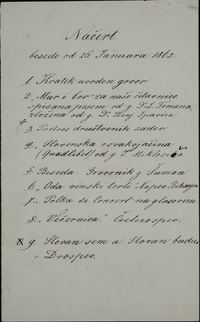 Načert
besede od 26 Januara 1862.
1. Kratek uvoden govor
2. Mar i bor za našo čitavnico
spisana pesem od g. Tomana,
zložena od g. Dr Benj. Ipavica
3. Pretres društvenih zadev
4. Slovenska vsakojačina
(Quodlibet) od g. F. Miklosiča
5. Beseda. Govornik g Tuman
6. Oda vinski terti
7. Polka de Concert na glasoviru
8. "Večernica." Cveterospev.
9. Slovan sem a Slovan budu
Dvospev.